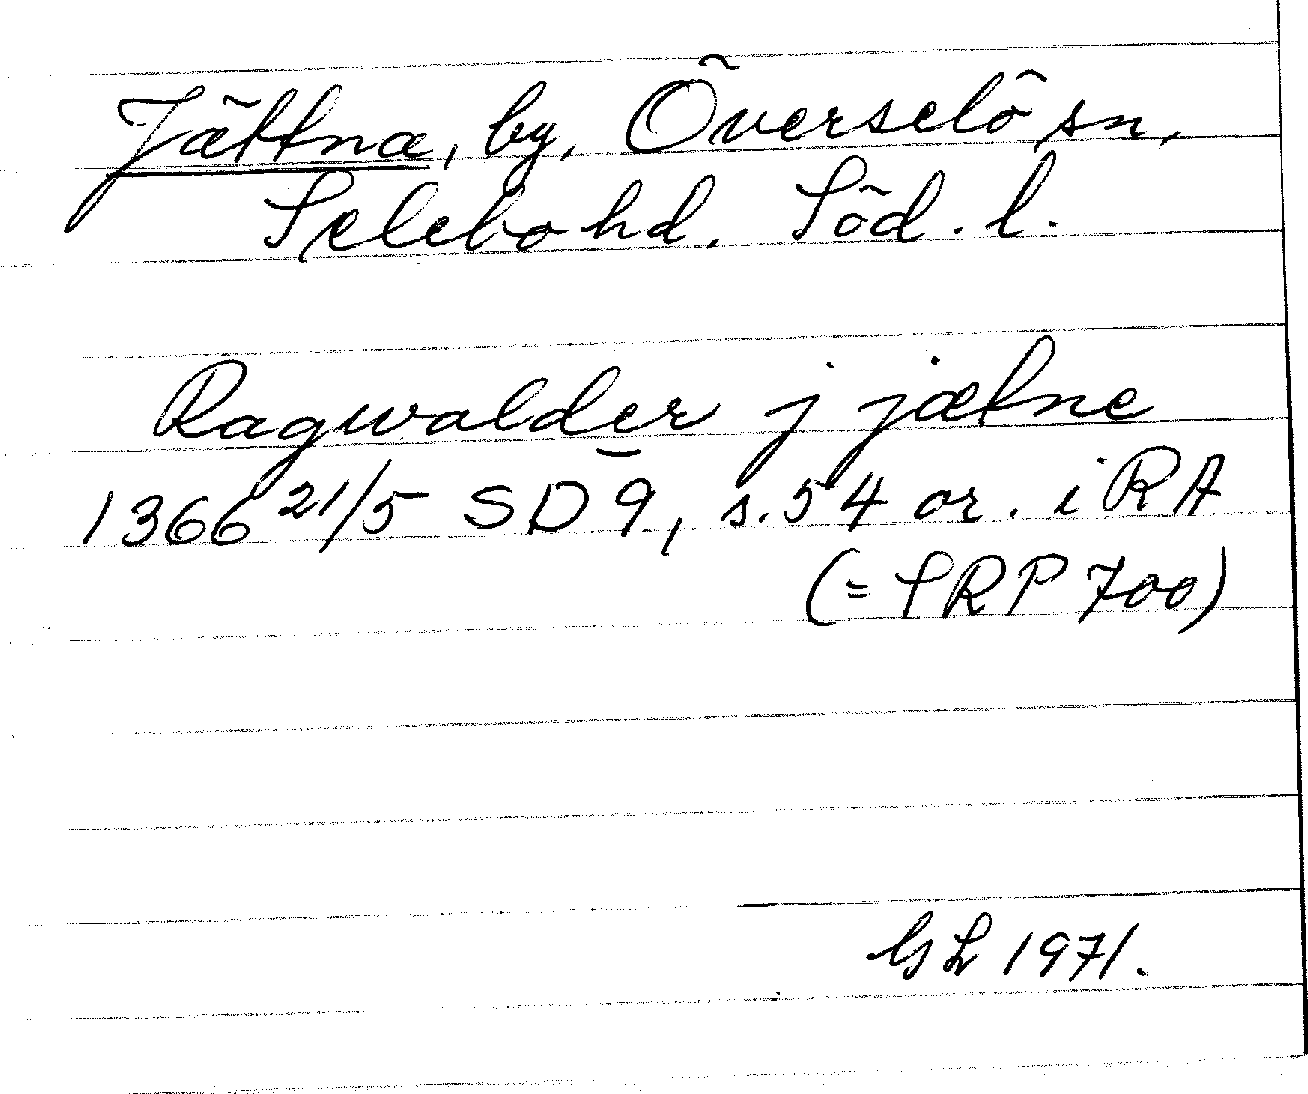 Jättna, by, Överselö sn,
Selebo hd. Söd. l.
Ragwalder j jætne
1366 21/5 SD 9, s. 54 or. i RA
(= SRP 700)
GL 1971.